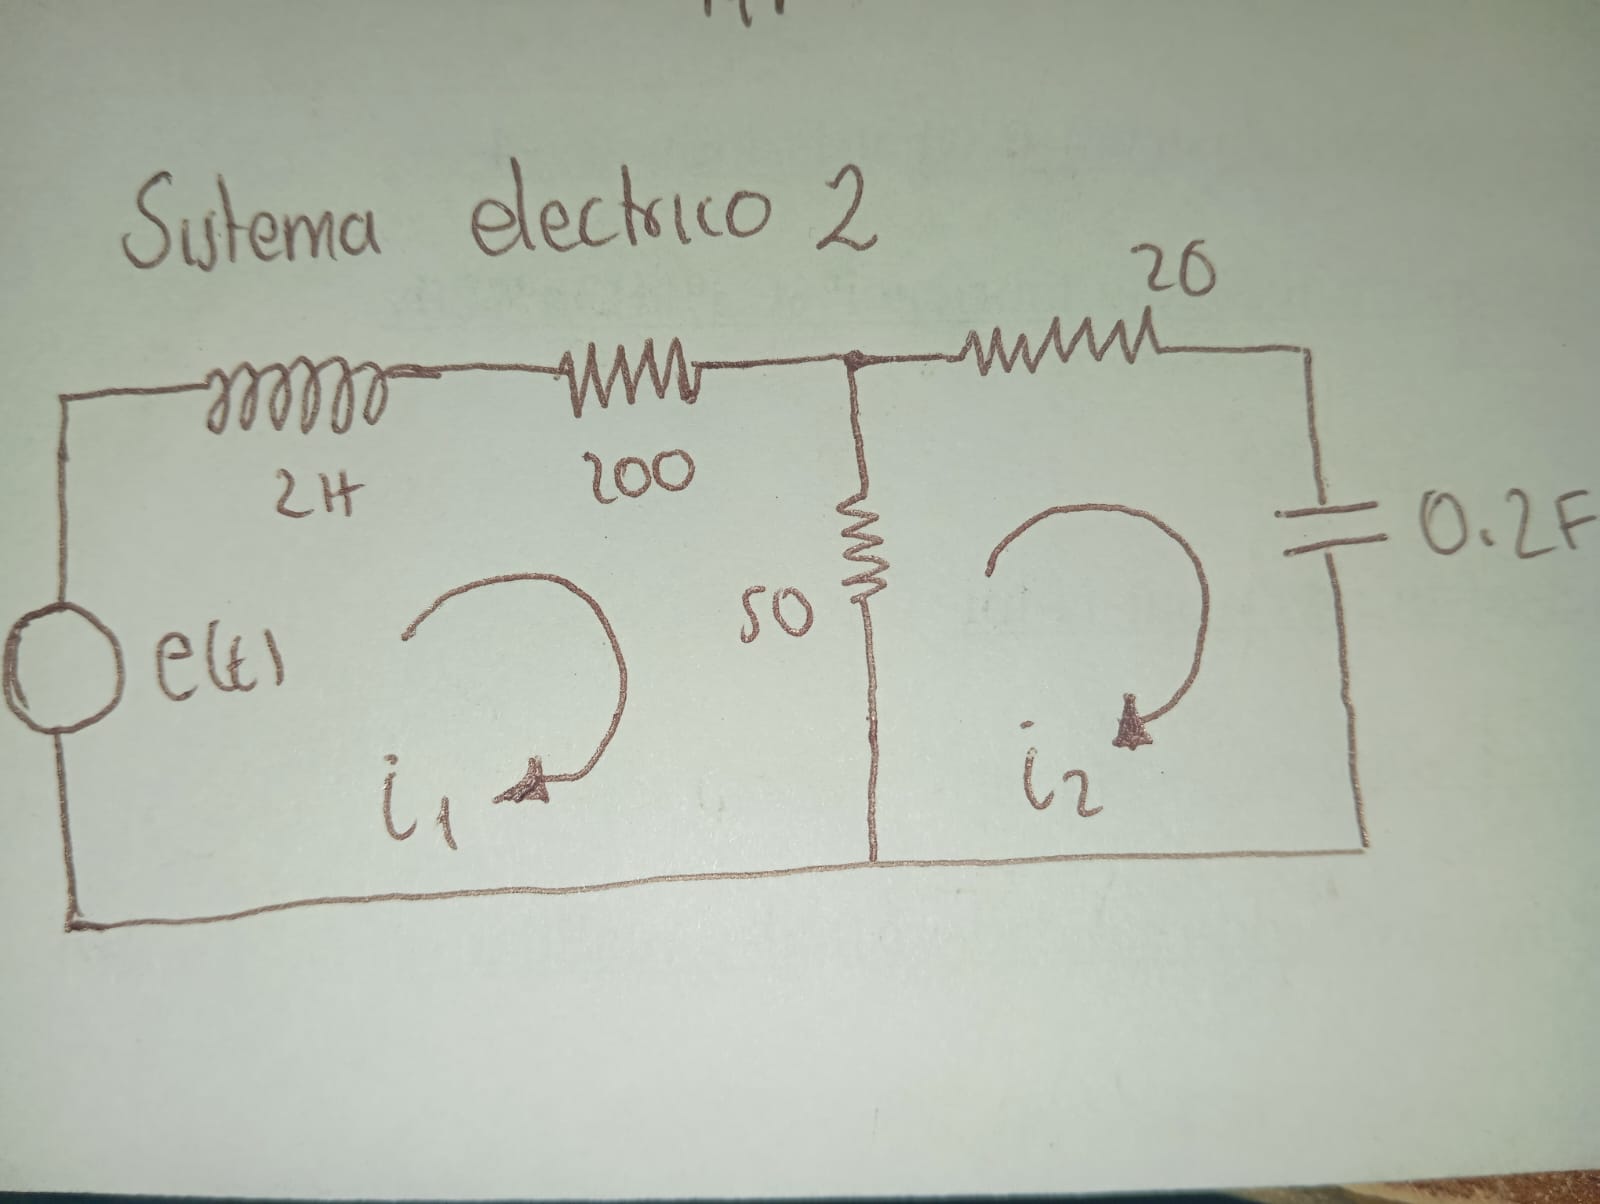 Sistema electrico 2
20
2H
200
0.2F
50
e(t)
i1
i2